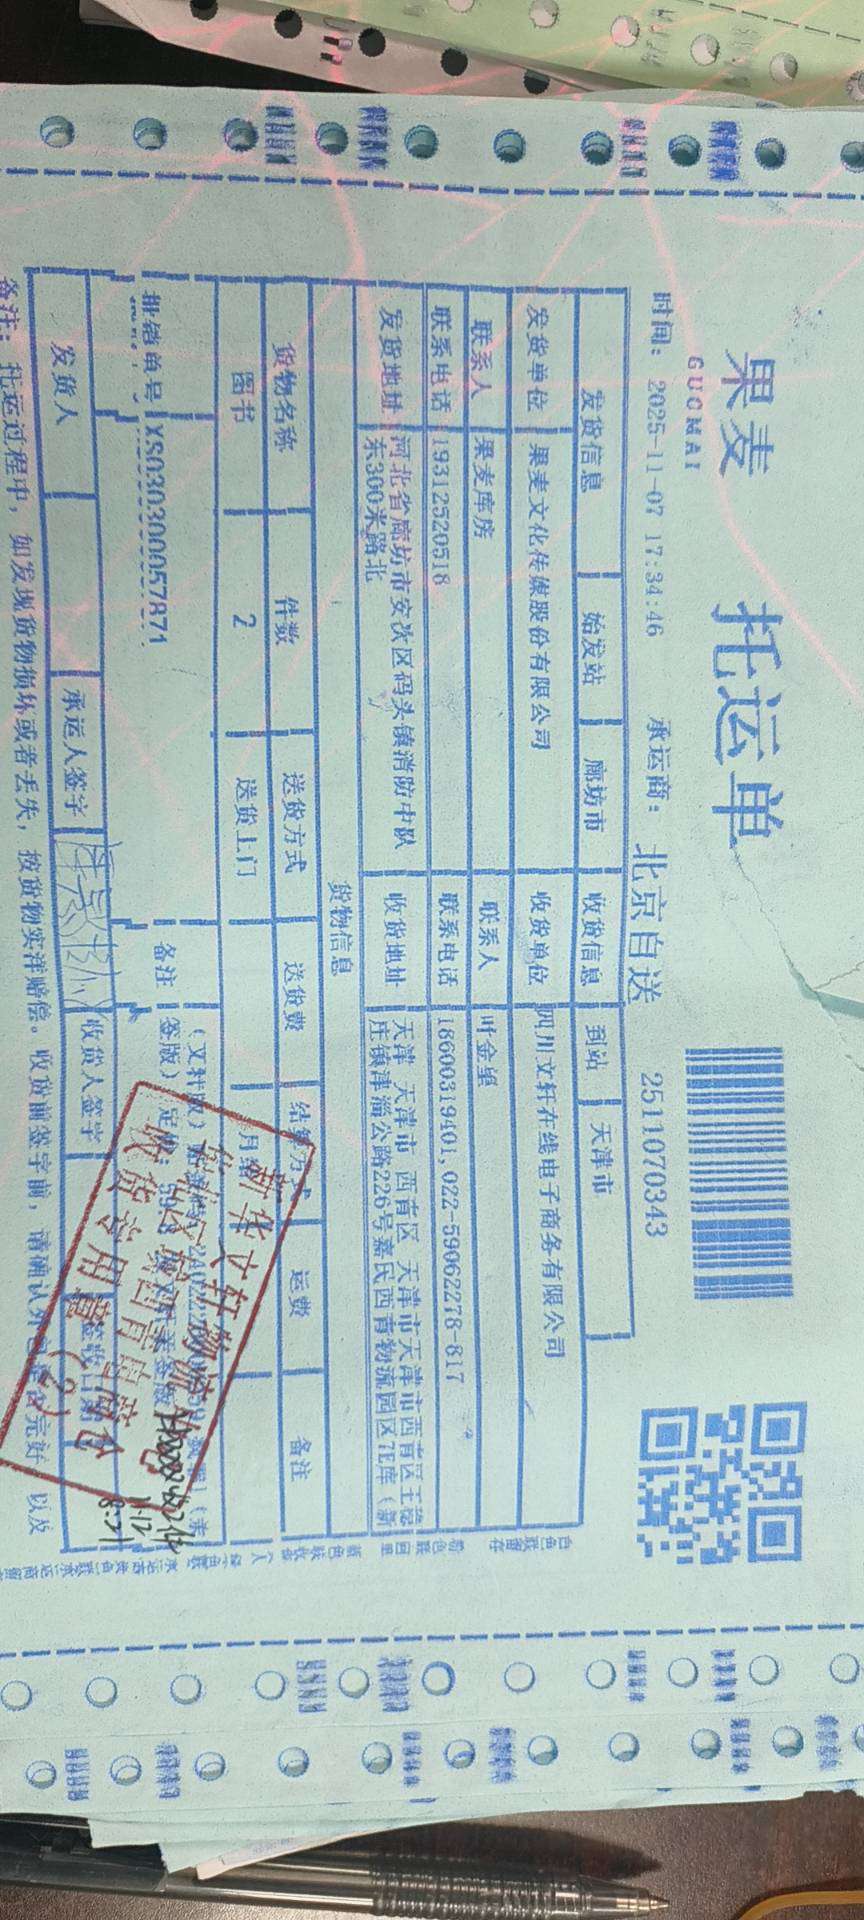 果麦 托运单
GUOMAI
2511070343
时间：2025-11-07 17:34:46 承运商：北京自送
发货信息 始发站 廊坊市 收货信息 到站 天津市
发货单位 果麦文化传媒股份有限公司 收货单位 四川文轩在线电子商务有限公司
联系人 果麦库房 联系人 叶金星
联系电话 19312520518 联系电话 18600319401,022-59062278-817
发货地址 河北省廊坊市安次区码头镇消防中队东300米路北 收货地址 天津 天津市 西青区 天津市天津市西青区王稳庄镇津淄公路226号嘉民西青物流园区7E库（新
货物信息
货物名称 件数 送货方式 送货费 结算方式 运费 备注
图书 2 送货上门 月结
批销单号 XS030300057871 备注 （文轩版）
签版）
发货人 承运人签字 收货人签字 签收日期
备注：托运过程中，如发现货物损坏或者丢失，按货物实洋赔偿。收货前签字前，请确认外包是否完好，以及
新华文轩物流
收货专用章
(2)